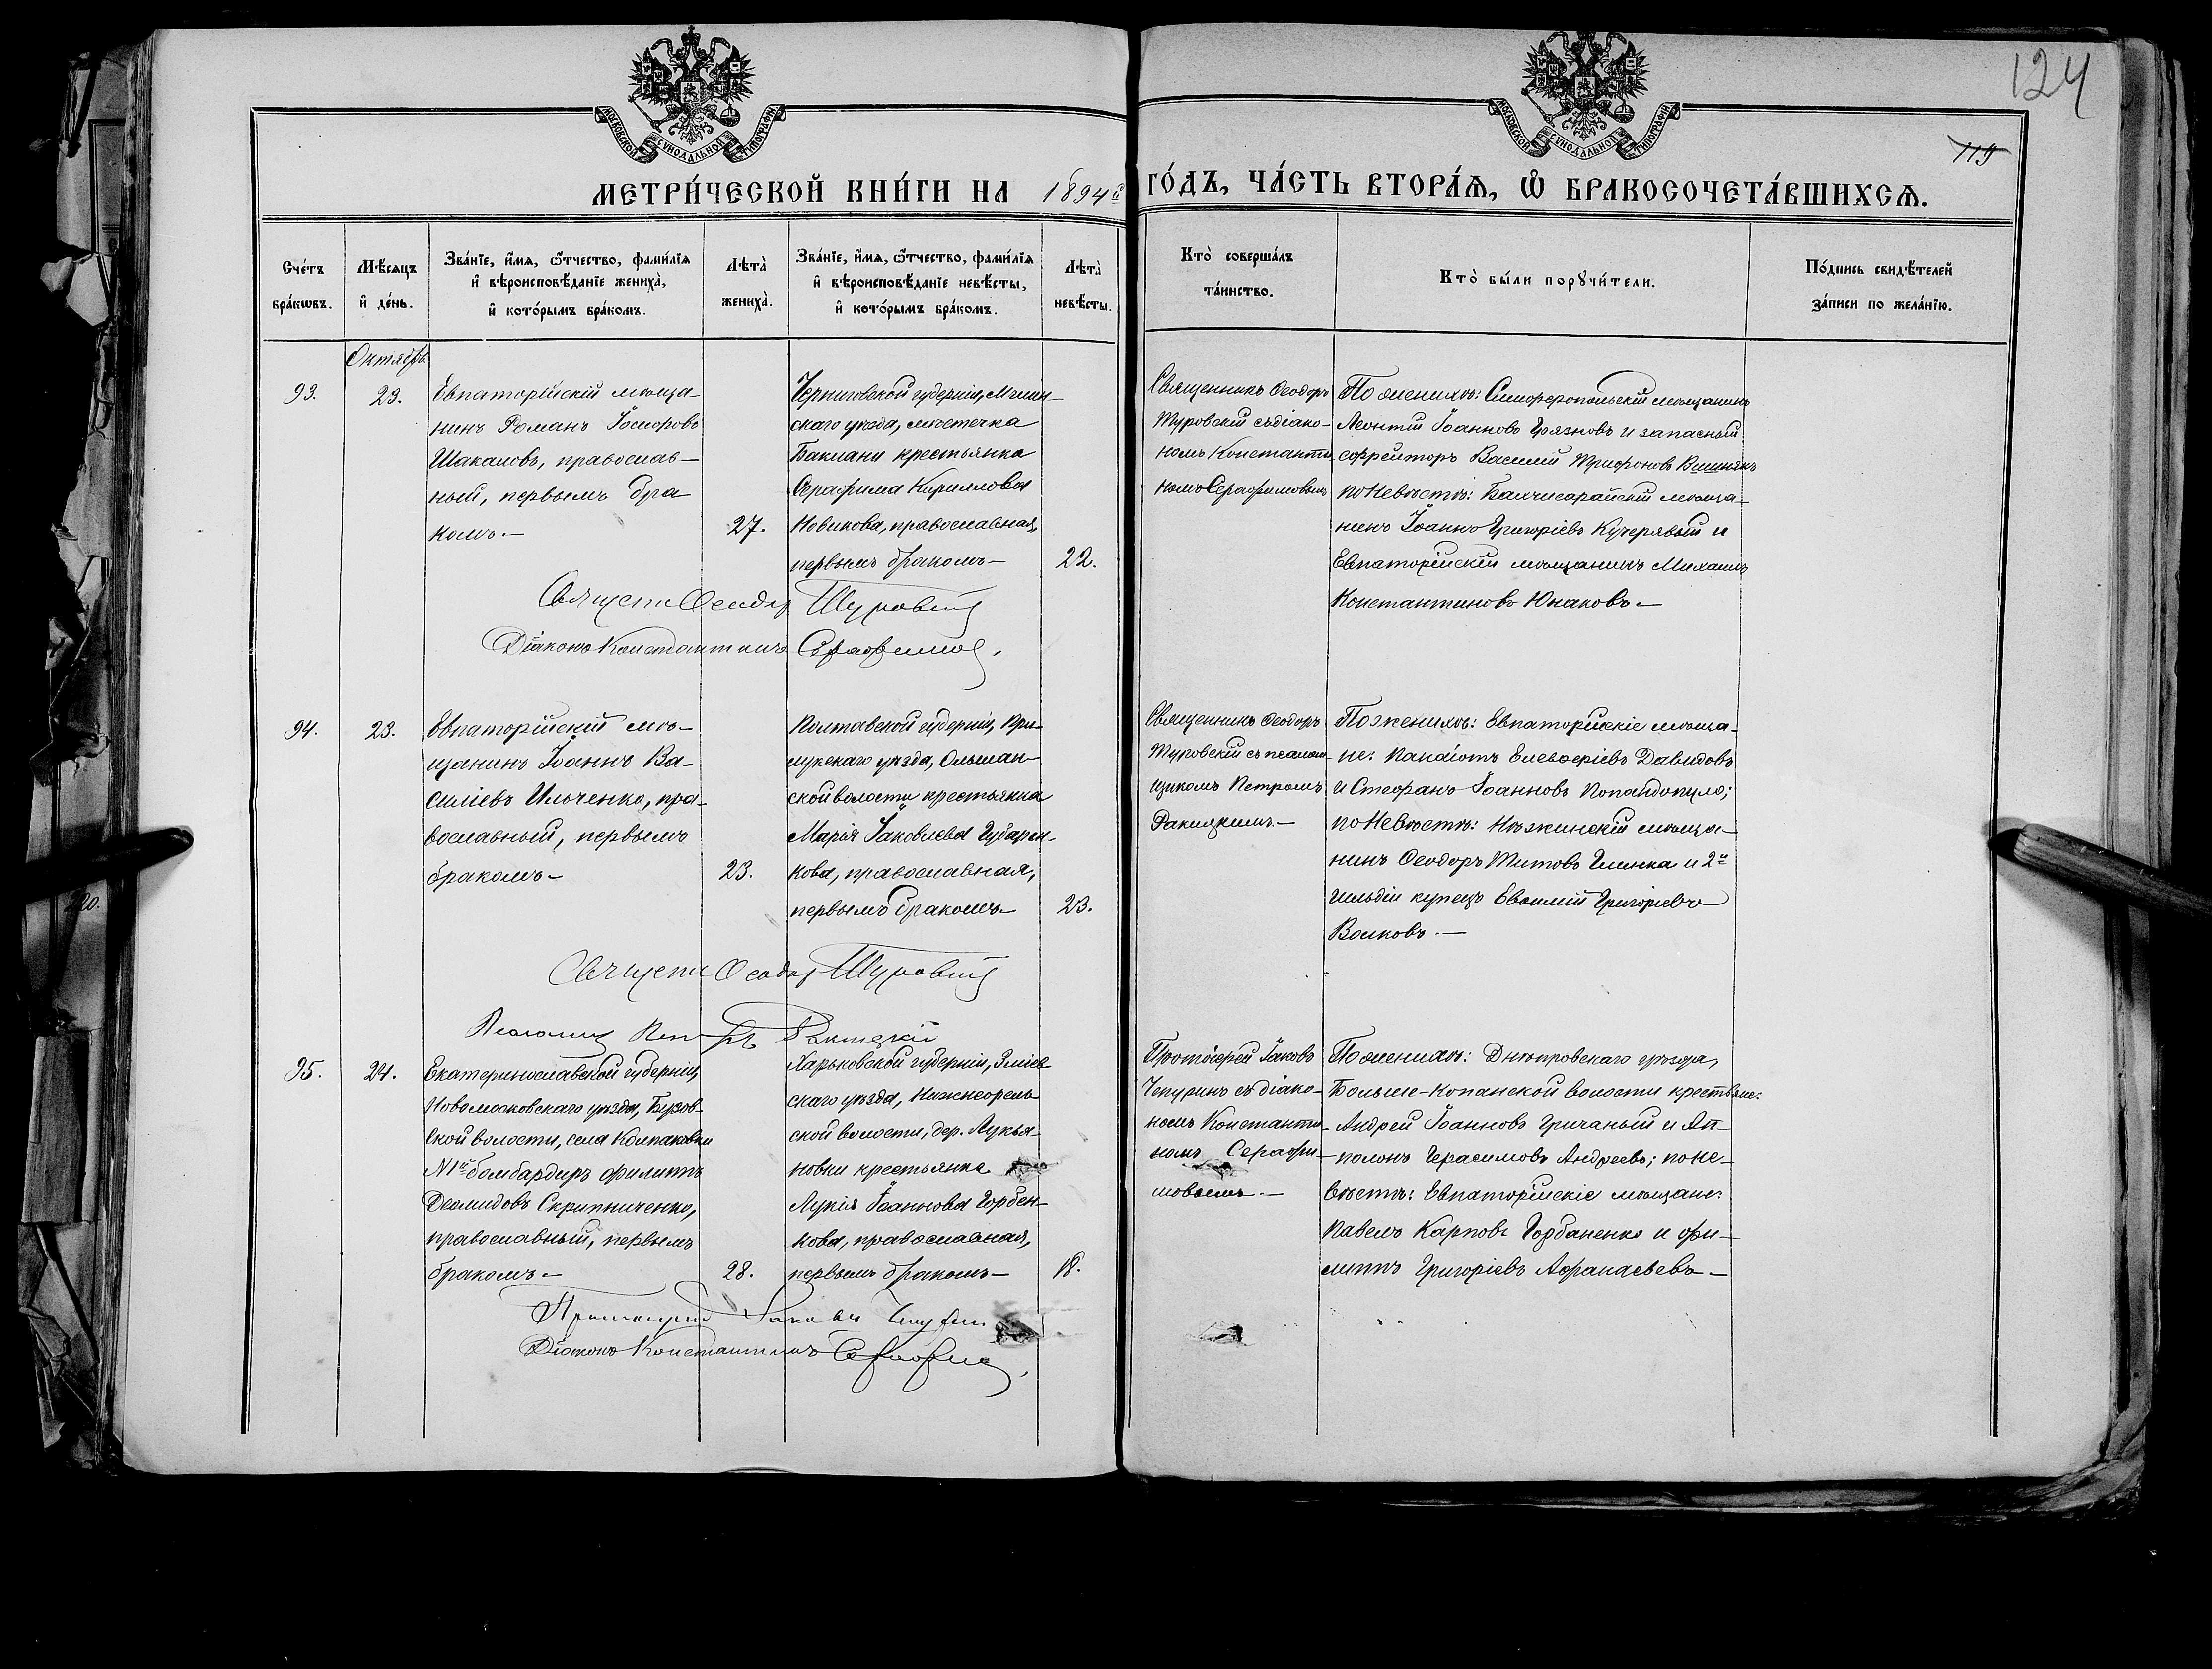 124
119
МОСКОВСКОЙ СѴНОДАЛЬНОЙ ТИПОГРАФІИ
МОСКОВСКОЙ СѴНОДАЛЬНОЙ ТИПОГРАФІИ
МЕТРИ́ЧЕСКОЙ КНИ́ГИ НА 1894й ГО́ДЪ, ЧА́СТЬ ВТОРА́Ѧ, Ѡ҆ БРАКОСОЧЕТА́ВШИХСѦ.
Сче́тъ
бра́кѡвъ.
Мѣ́сѧцъ
и҆ де́нь.
Зва́нїе, и҆́мѧ, ѻ҆́тчество, фами́лїѧ
и҆ вѣроисповѣ́данїе жениха̀,
и҆ кото́рымъ бра́комъ.
Лѣта̀
жениха̀.
Зва́нїе, и҆́мѧ, ѻ҆́тчество, фами́лїѧ
и҆ вѣроисповѣ́данїе невѣ́сты,
и҆ кото́рымъ бра́комъ.
Лѣта̀
невѣ́сты.
Кто̀ соверша́лъ
та́инство.
Кто̀ бы́ли порꙋчи́тели.
По́дпись свидѣ́телей
за́писи по жела́нїю.
Октябрь
93.
23.
Евпаторійскій мѣща-
нинъ Романъ
Шакаловъ, православ-
ный, первымъ бра
комъ.-
27.
Черниговской губерніи, Мглин-
скаго уѣзда, мѣстечка
Баклани крестьянка
Серафима Кириллова
Новикова, православная,
первымъ бракомъ-
22.
Священникъ Ѳеодоръ
Туровскій съ діако-
номъ Константи-
номъ Серафимовымъ
По женихѣ: Симферопольскій мѣщанинъ
Леонтій Іоанновъ Грязновъ и запасный
ефрейторъ Василій Трифоновъ Вишнякъ
по Невѣстѣ: Бахчисарайскій мѣща-
нинъ Іоаннъ Григоріевъ Кучерявый и
Евпаторійскій мѣщанинъ Михаилъ
Константиновъ Юнаковъ.-
Священ Ѳеодор Туровскій
Діаконъ Константинъ Серафимов.
94.
23.
Евпаторійскій мѣ-
щанинъ Іоаннъ Ва-
силіевъ Ильченко, пра-
вославный, первымъ
бракомъ-
23.
Полтавской губерніи, При-
лукскаго уѣзда, Ольшан-
ской волости крестьянка
Марія Іаковлева Губарен-
кова, православная,
первымъ бракомъ.-
23.
Священникъ Ѳеодоръ
Туровскій съ псалом-
щикомъ Петромъ
Ракицкимъ.-
По женихѣ: Евпаторійскіе мѣща-
не: Панаіотъ Елевѳеріевъ Давидовъ
и Стефанъ Іоанновъ Попандопуло;
по Невѣстѣ: Нѣжинскій мѣща-
нинъ Ѳеодоръ Титовъ Глинка и 2й
гильдіи купецъ Евѳимій Григоріевъ
Волковъ.-
Священ Ѳеодор Туровскій
Псаломщ Петръ Ракицкій
95.
24.
Екатеринославской губерніи,
Новомосковскаго уѣзда, Бузов-
ской волости, села Колпаковки
№1й бомбардиръ Филиппъ
Деомидовъ Скрипниченко,
православный, первымъ
бракомъ-
28.
Харьковской губерніи, Зміев-
скаго уѣзда, Нижнеорель-
ской волости, дер. Лукья-
новки крестьянка
Лукія Іоаннова Горбен-
кова, православная,
первымъ бракомъ-
18.
Протоіерей Іаковъ
Чепуринъ съ діако-
номъ Константи-
номъ Серафи-
мовымъ.-
По женихѣ: Днѣпровскаго уѣзда,
Больше-Копанской волости крестьяне:
Андрей Іоанновъ Гричаный и Ап-
полонъ Герасимовъ Андреевъ; по не-
вѣстѣ: Евпаторійскіе мѣщане:
Павелъ Карповъ Горбаненко и Фи-
липпъ Григоріевъ Афанасьевъ.-
Протоіерей Іаковъ Чепурин
Діаконъ Константинъ Серафимов.
20.